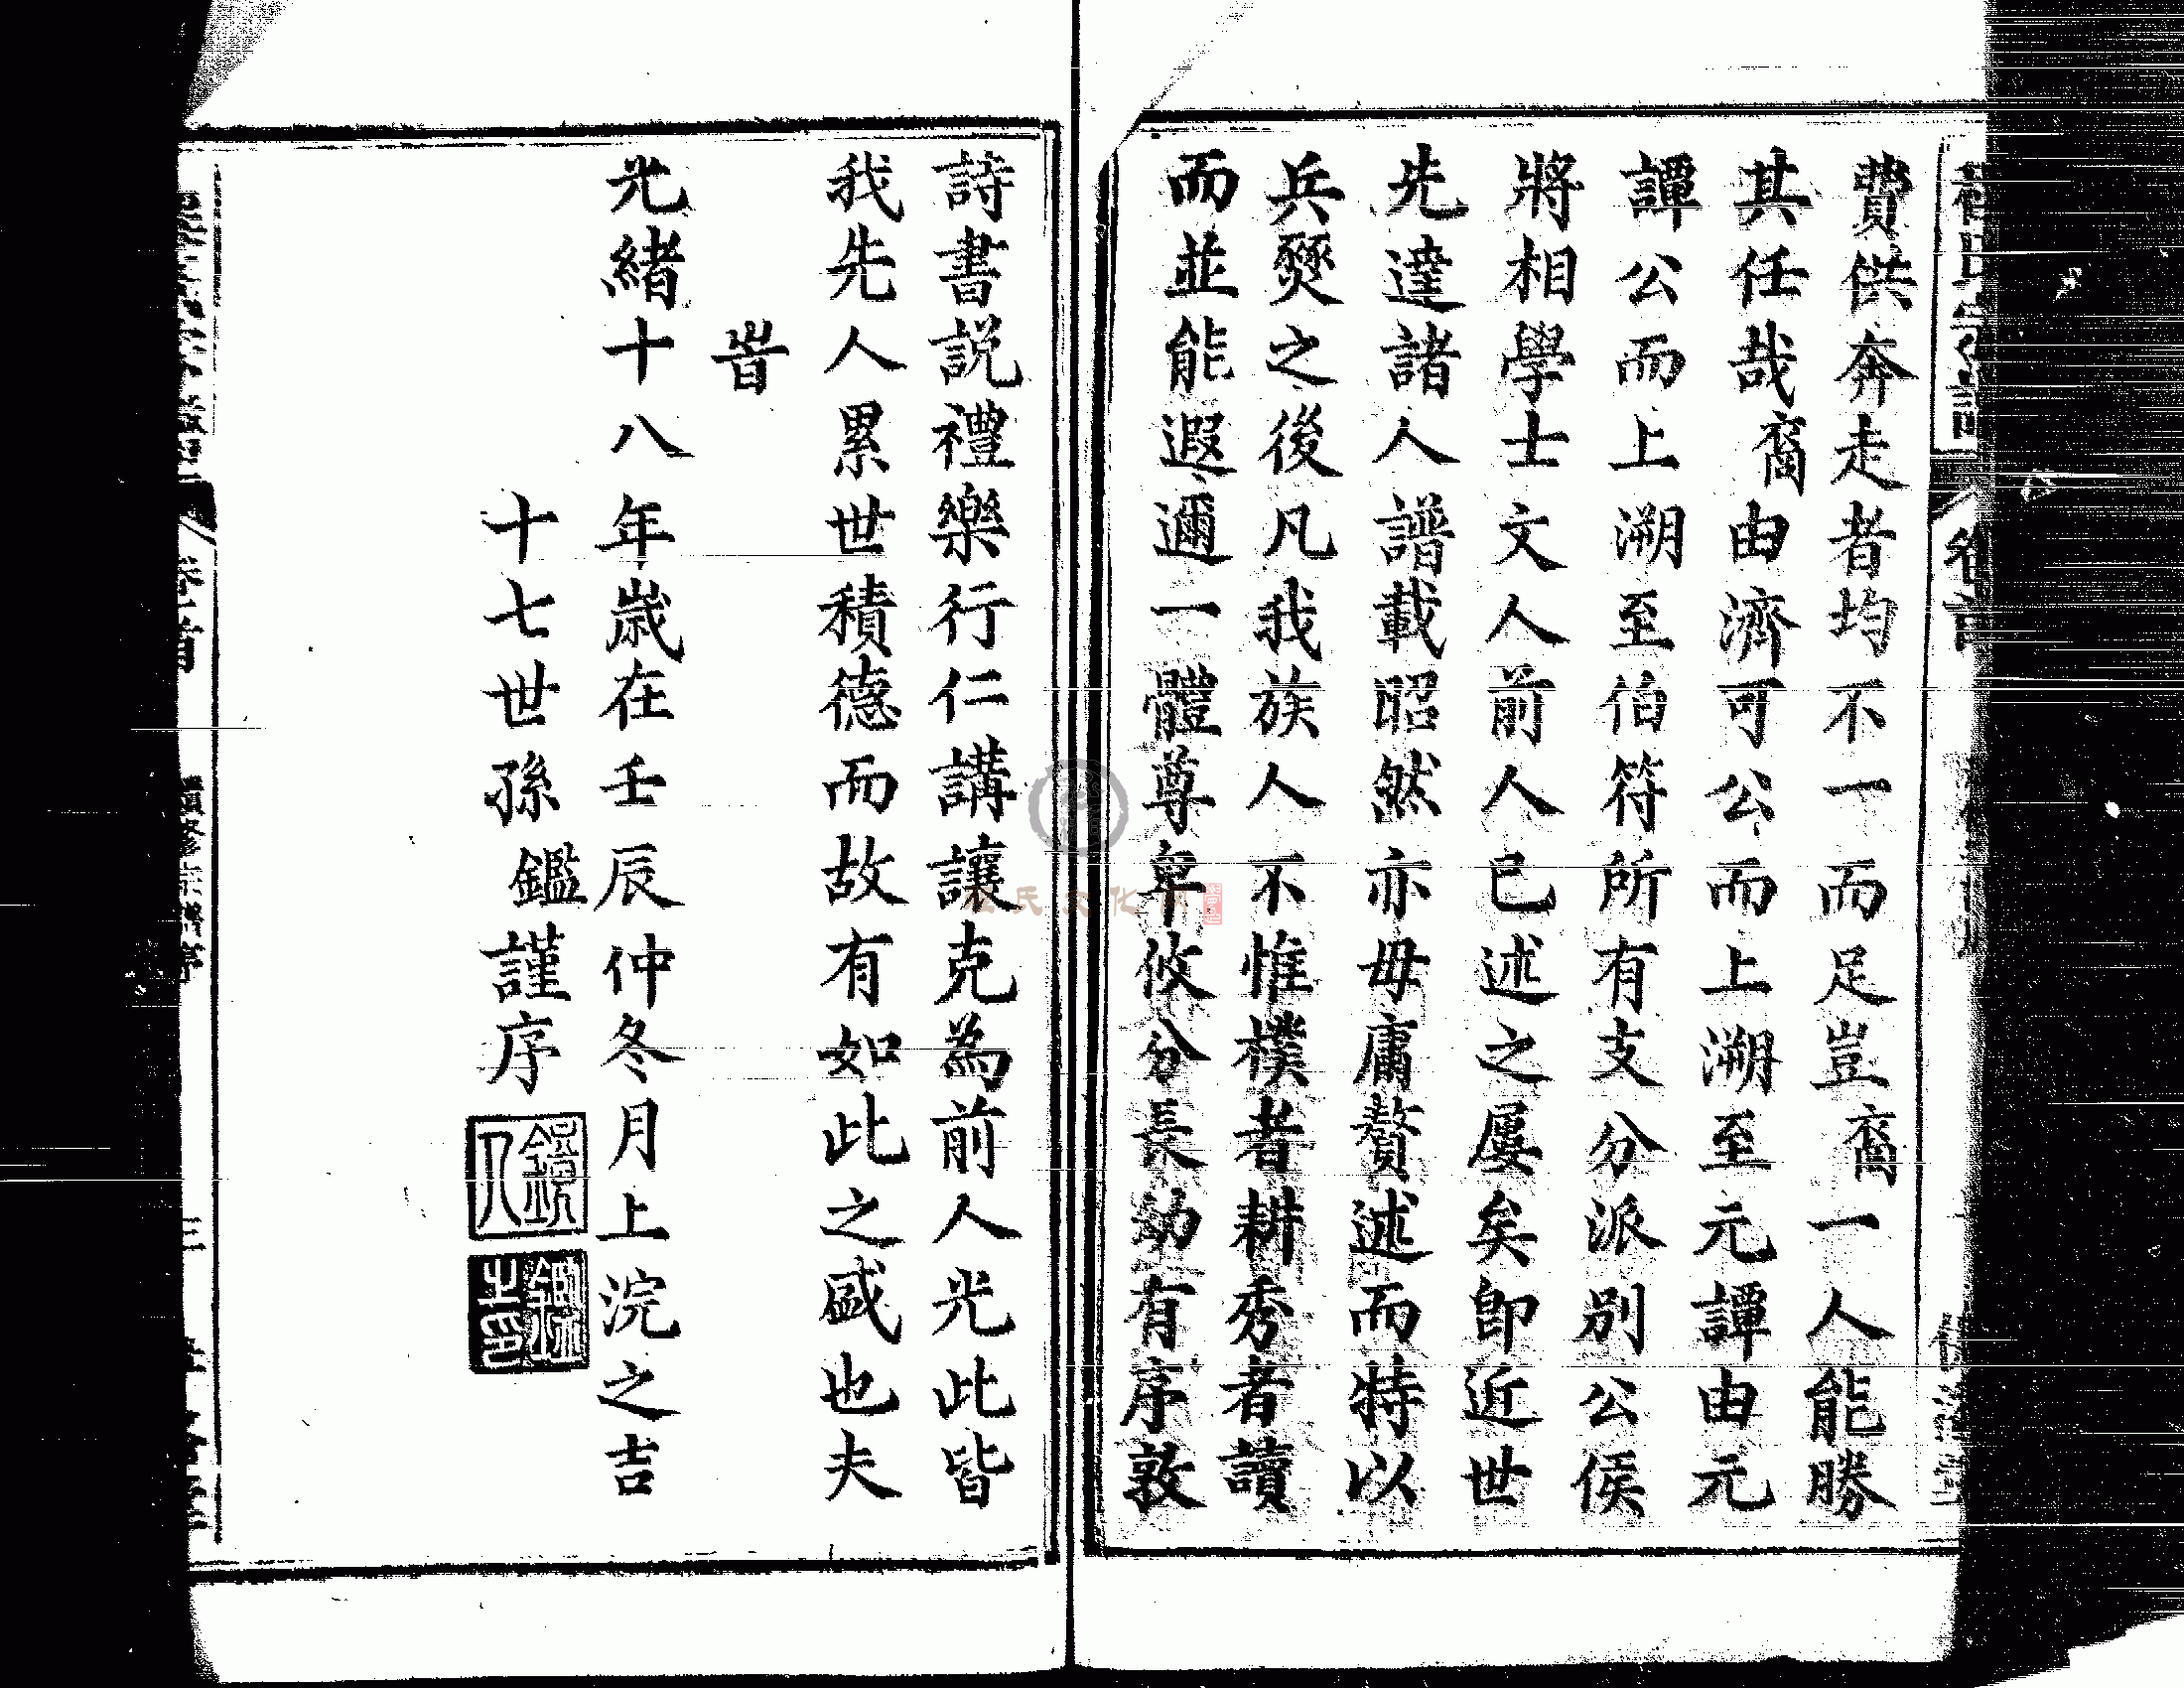 費供奔走者均不一而足豈裔一人能勝
其任哉裔由濟可公而上溯至元譚由元
譚公而上溯至伯符所有支分派別公侯
將相學士文人前人已述之屢矣即近世
先達諸人譜載昭然亦毋庸贅述而特以
兵燹之後凡我族人不惟樸者耕秀者讀
而並能遐邇一體尊卑攸分長幼有序敦
詩書説禮樂行仁講讓克為前人光此皆
我先人累世積德而故有如此之盛也夫
旹
光緒十八年歲在壬辰仲冬月上浣之吉
十七世孫鑑謹序
卷首
三